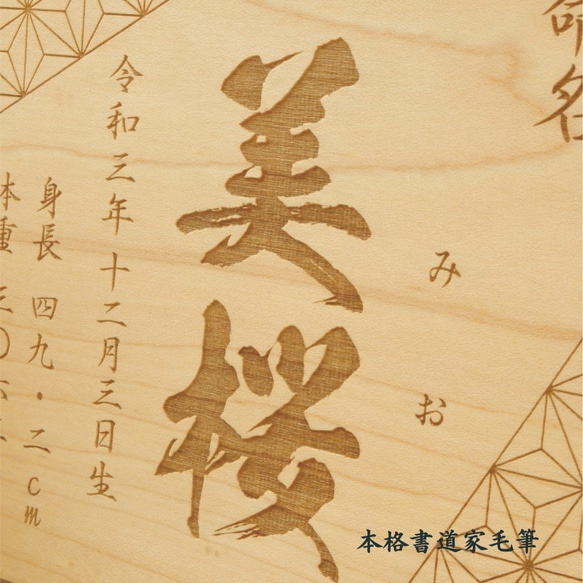 命名
みお
美桜
令和三年十二月三日生
身長 四九・二cm
体重 三〇六
本格書道家毛筆